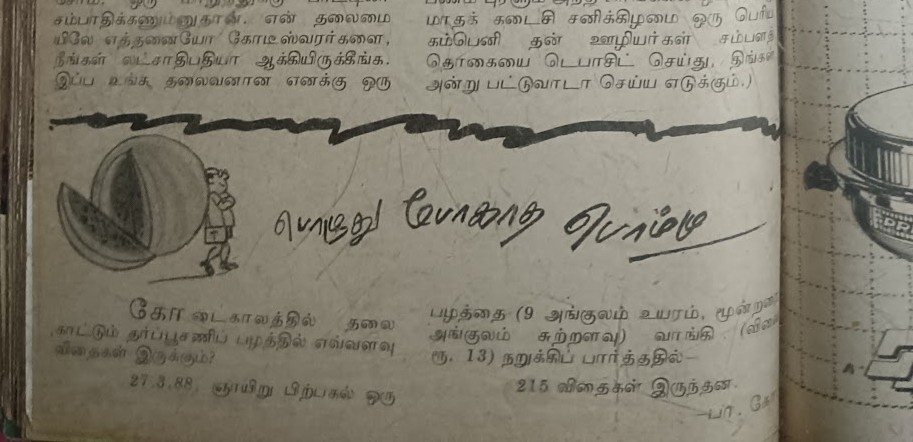 சம்பாதிக்கணும்னுதான். என் தலைமை
யிலே எத்தனையோ கோடீஸ்வரர்களை,
நீங்கள் லட்சாதிபதியா ஆக்கியிருக்கீங்க.
இப்ப உங்க தலைவனான எனக்கு ஒரு
மாதக் கடைசி சனிக்கிழமை ஒரு பெரிய
கம்பெனி தன் ஊழியர்கள் சம்பளத்
தொகையை டெபாசிட் செய்து, திங்கள்
அன்று பட்டுவாடா செய்ய எடுக்கும்.)
பொழுது போகாத பொம்மு
கோடைகாலத்தில் தலை
காட்டும் தர்ப்பூசணிப் பழத்தில் எவ்வளவு
விதைகள் இருக்கும்?
27.3.88. ஞாயிறு பிற்பகல் ஒரு
பழத்தை (9 அங்குலம் உயரம், மூன்றரை
அங்குலம் சுற்றளவு) வாங்கி (விலை
ரூ. 13) நறுக்கிப் பார்த்ததில்—
215 விதைகள் இருந்தன.
—பா.